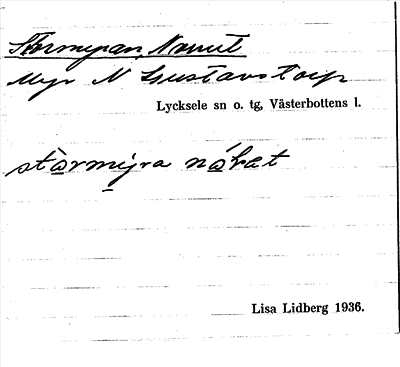 Stormyran, Norrut
Myr N Gustavstorp
Lycksele sn o. tg, Västerbottens l.
Lisa Lidberg 1936.